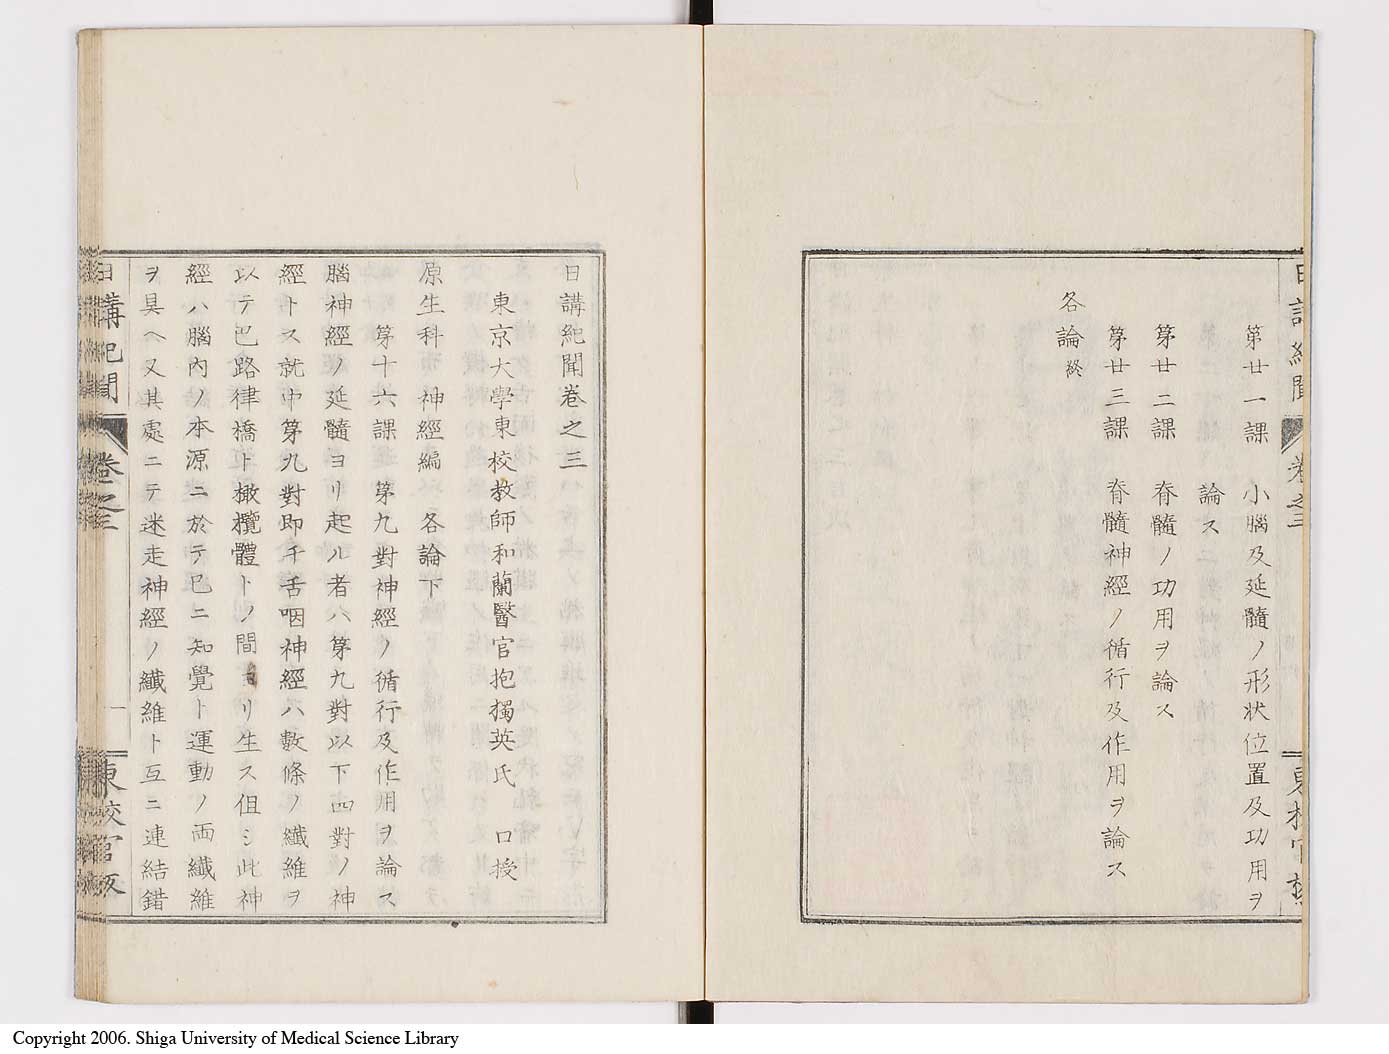 第廿一課　小腦及延髓ノ形状位置及功用ヲ
論ス
第廿二課　脊髓ノ功用ヲ論ス
第廿三課　脊髓神經ノ循行及作用ヲ論ス
各論終
日講紀聞卷之三
東京大學東校教師和蘭醫官抱獨英氏　口授
原生科　神經編　各論下
第十六課　第九對神經ノ循行及作用ヲ論ス
腦神經ノ延髓ヨリ起ル者ハ第九對以下四對ノ神
經トス就中第九對即チ舌咽神經ハ數條ノ纖維ヲ
以テ巴路律橋ト橄欖體トノ間ヨリ生ス但シ此神
經ハ腦內ノ本源ニ於テ已ニ知覺ト運動ノ両纖維
ヲ具ヘ又其處ニテ迷走神經ノ纖維ト互ニ連結錯
日講紀聞　卷之三　一　東校官板
Copyright 2006. Shiga University of Medical Science Library